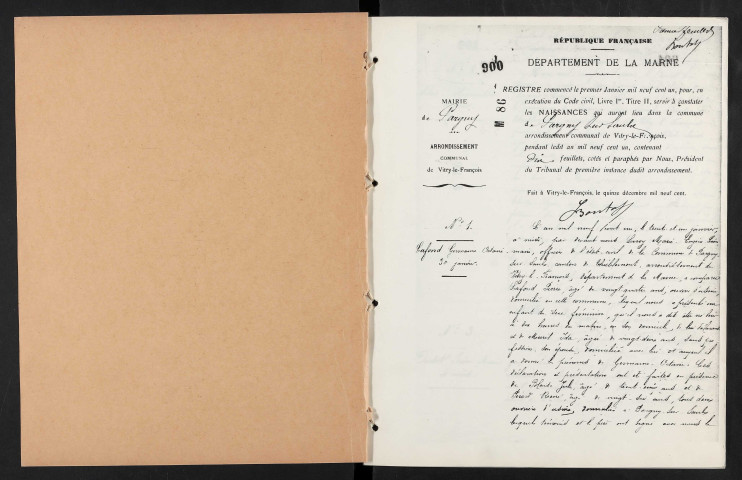 RÉPUBLIQUE FRANÇAISE
900
DÉPARTEMENT DE LA MARNE
REGISTRE commencé le premier Janvier mil neuf cent un, pour, en
exécution du Code civil, Livre Ier, Titre II, servir à constater
les NAISSANCES qui auront lieu dans la commune
de Pargny sur Saulx
arrondissement communal de Vitry-le-François,
pendant ledit an mil neuf cent un, contenant
Dix feuillets, cotés et paraphés par Nous, Président
du Tribunal de première instance dudit arrondissement.
MAIRIE
de Pargny
ARRONDISSEMENT
COMMUNAL
de Vitry-le-François
M 86
Fait à Vitry-le-François, le quinze décembre mil neuf cent.
N° 1.
Germaine Octavie
30 janvier
L'an mil neuf cent un, le trente et un janvier,
à midi, par devant nous, Leroy Marie
maire, officier de l'état civil de la Commune de Pargny
sur Saulx, canton de Thiéblemont, arrondissement de
Vitry-le-François, département de la Marne, a comparu
âgé de vingt quatre ans, ouvrier d'usine,
domicilié en cette commune, lequel nous a présenté un
enfant de sexe féminin, qu'il nous a dit être né hier
à dix heures du matin, en son domicile, de lui déclarant
et de Ida, âgée de vingt deux ans, sans pro
fession, son épouse, domiciliée avec lui et auquel il
a donné les prénoms de Germaine Octavie. Les
déclaration et présentation ont été faites en présence
de âgé de trente ans et de
âgé de vingt six ans, tous deux
ouvriers d'usine, domiciliés à Pargny sur Saulx
lesquels témoins et le père ont signé avec nous le